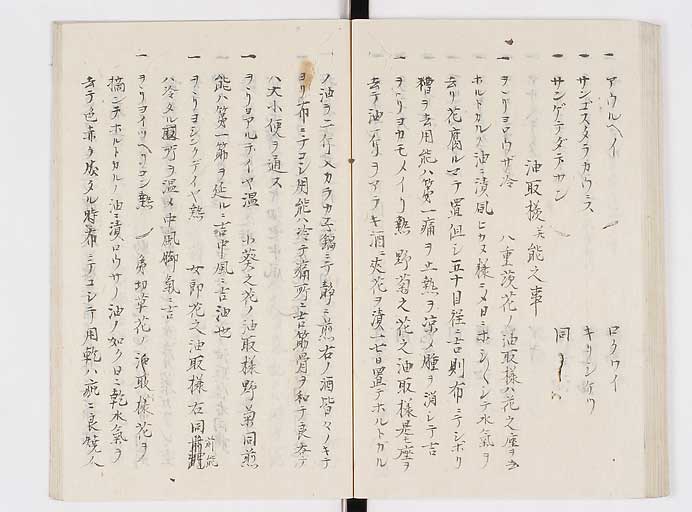 一 アウルヘイ ロクワイ
一 サンゴスタラカウニス キリンケツ
一 サンゲテダラサン 同
油取様並能之事
一 ヲヽリヨロウザ冷 八重茨花ノ油取様ハ花之座ヲ去
ホルトカルノ油ニ漬風ヒカヌ様ニメ日ニホシ シテ水氣ヲ
去リ花腐ルマテ置但シ五十目程ニ吉則布ニテシホリ
糟ヲ去用能ハ第一痛ヲ止熱ヲ涼ノ腫ヲ消シテ吉
一 ヲヽリヨカモメイリ熱 野菊之花之油取様是モ座ヲ
去テ油斤ヲアラキ酒ニ夾花ヲ漬一七日置テホルトカル
ノ油ヲ二斤入カラカ子鍋ニテ静ニ煎右ノ酒皆々ノキテ
ヨリ布ニテコシ用能ハ冷テ痛所ニ吉筋骨ヲ和テ良
ハ大小便ヲ通ス
一 ヲヽリヨアルデイヤ温 小葵之花ノ油取様野菊同煎
能ハ第一筋ヲ延ルニ吉中風ニ吉油也
一 ヲヽリヨシンクデイヤ熱 女郎花之油取様右同前能
ハ冷タル所ヲ温メ中風脚氣ニ吉
一 ヲヽリヨイツヘリコン熱 弟切草花ノ油取様花ヲ
摘シテホルトカルノ油ニ漬ロウサノ油ノ如ク日ニ乾水氣ヲ
去テ色赤ク成タル時布ニテコシテ用乾ハ疵ニ良